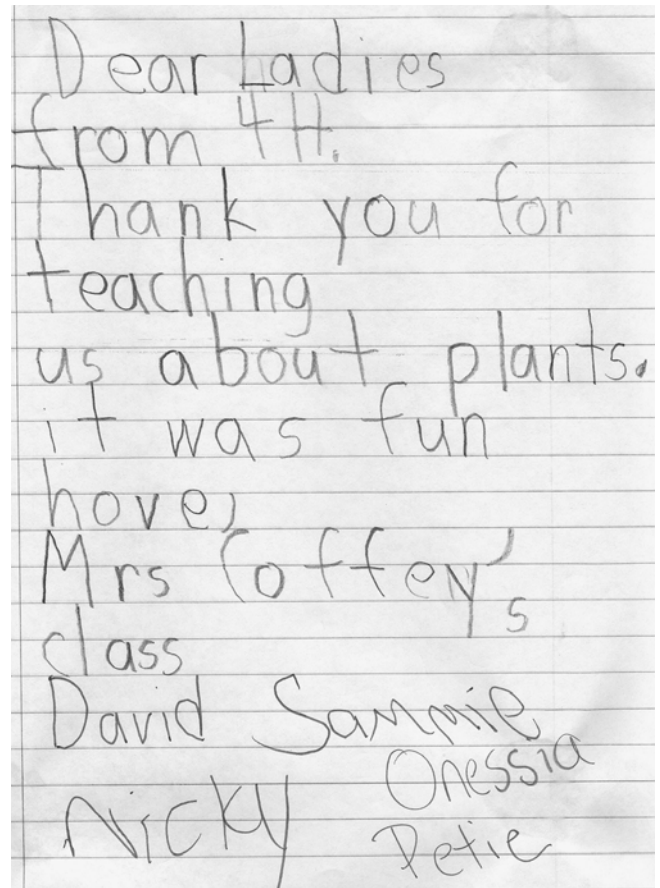 Dear Ladies
from 4H.
Thank you for
teaching
us about plants.
it was fun
hove,
Mrs Coffey's
class
David Sammie
Onessia
Nicky Petie